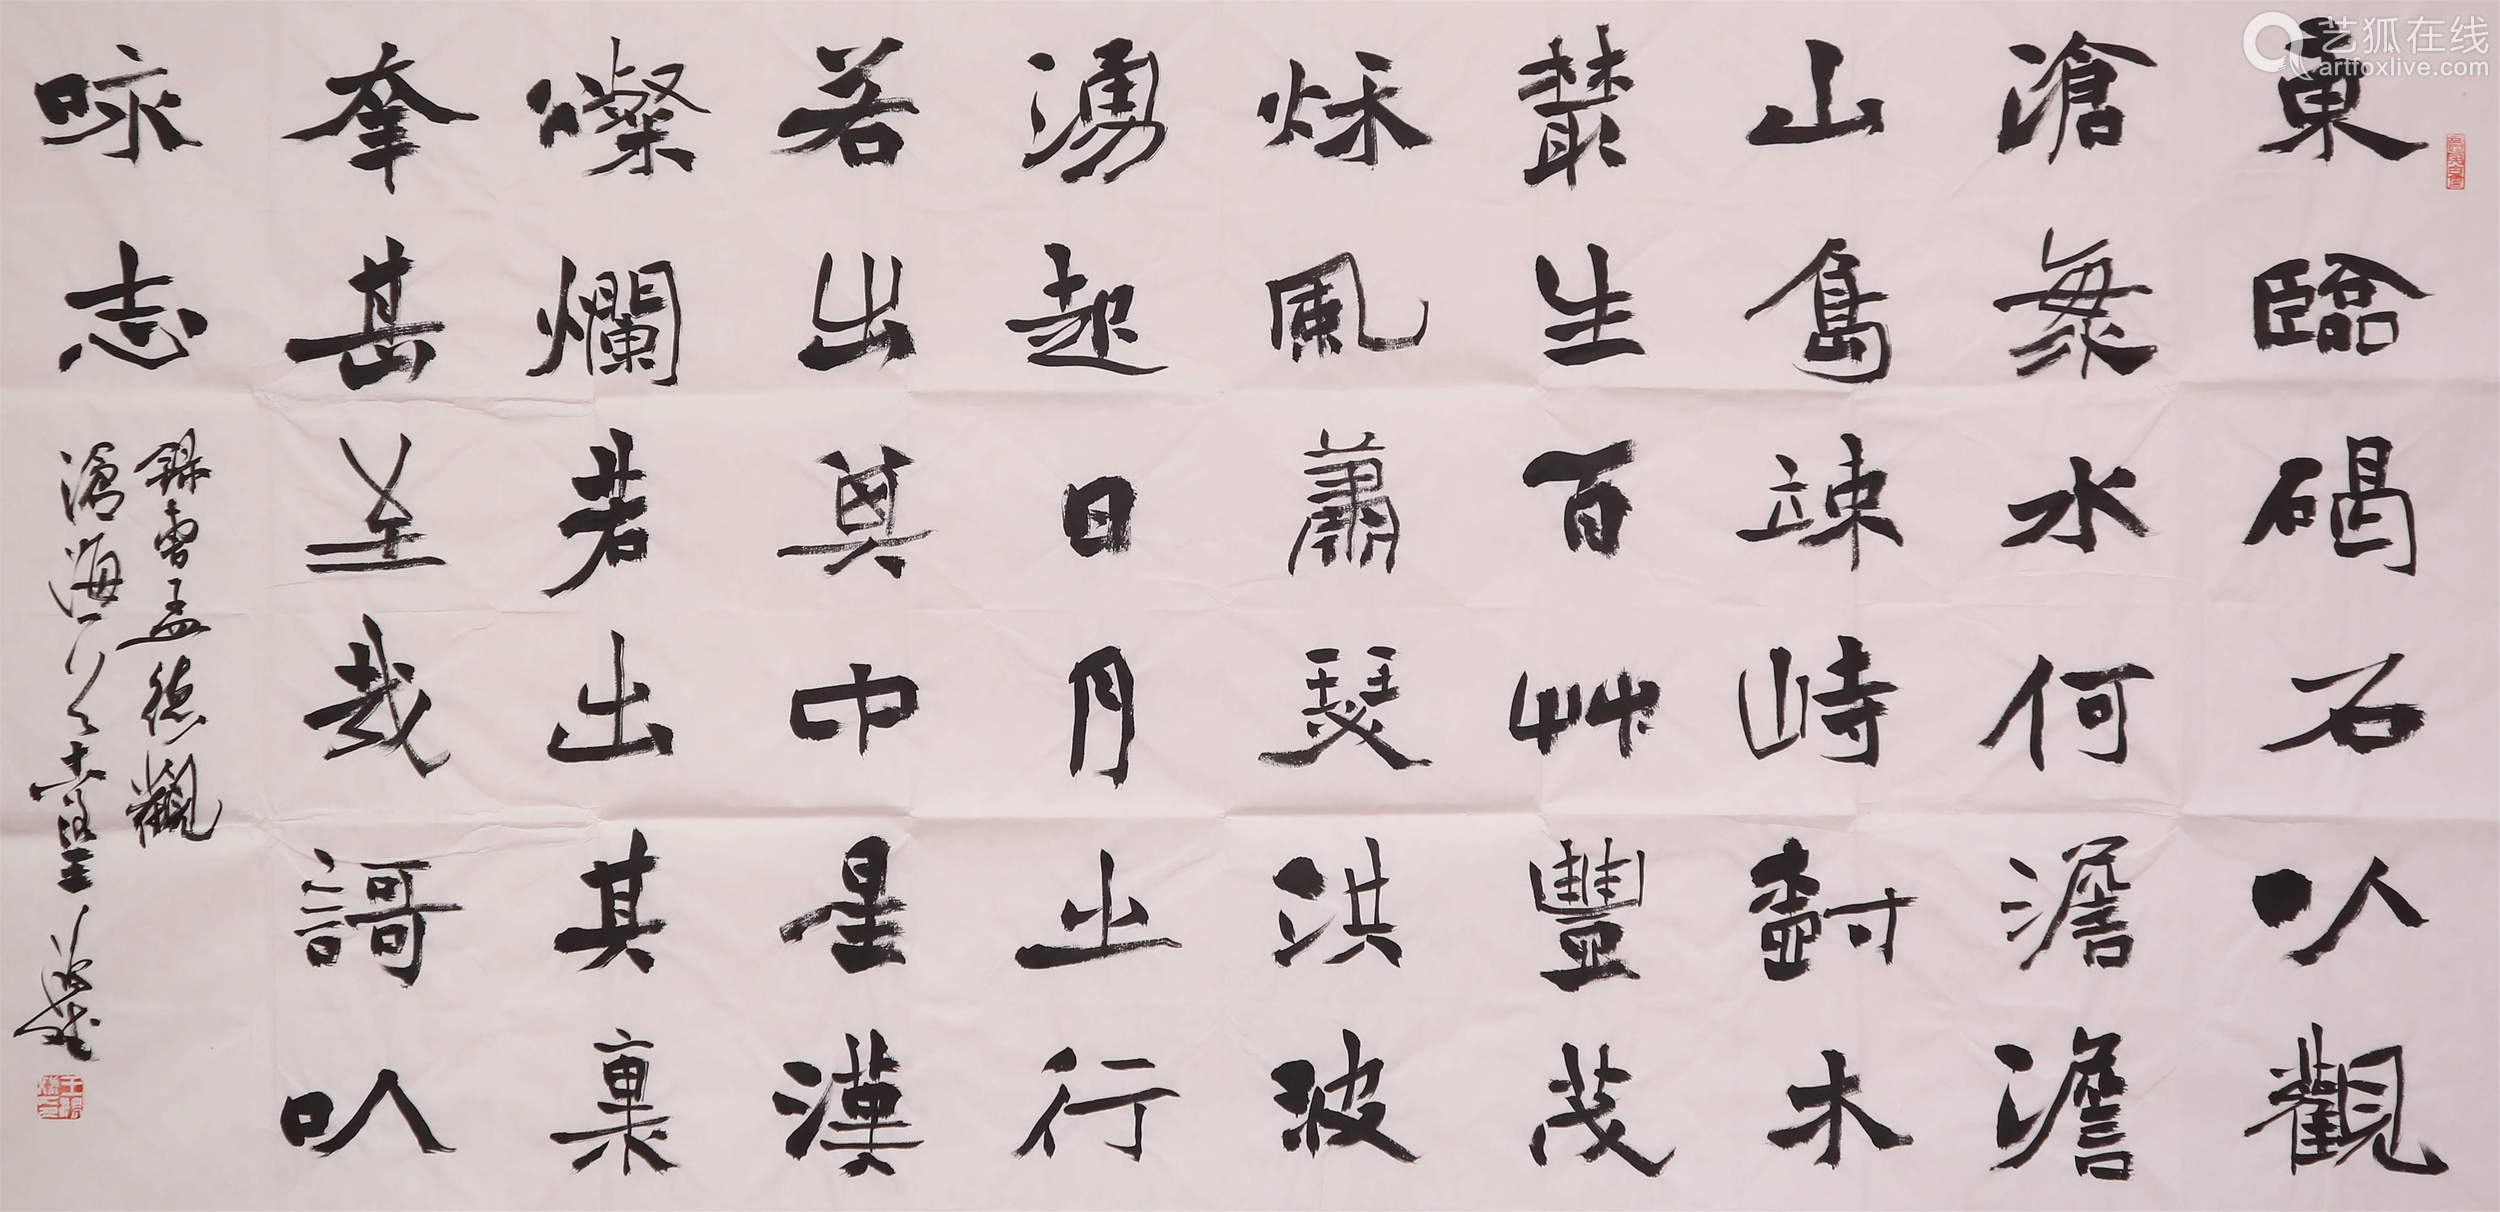 東臨碣石以觀
滄海水何澹澹
山島竦峙樹木
叢生百艸豐茂
秌風蕭瑟洪波
湧起日月之行
若出其中星漢
燦爛若出其裏
幸甚至哉謌以
咏志
錄曹孟德觀
滄海
艺狐在线
artfoxlive.com